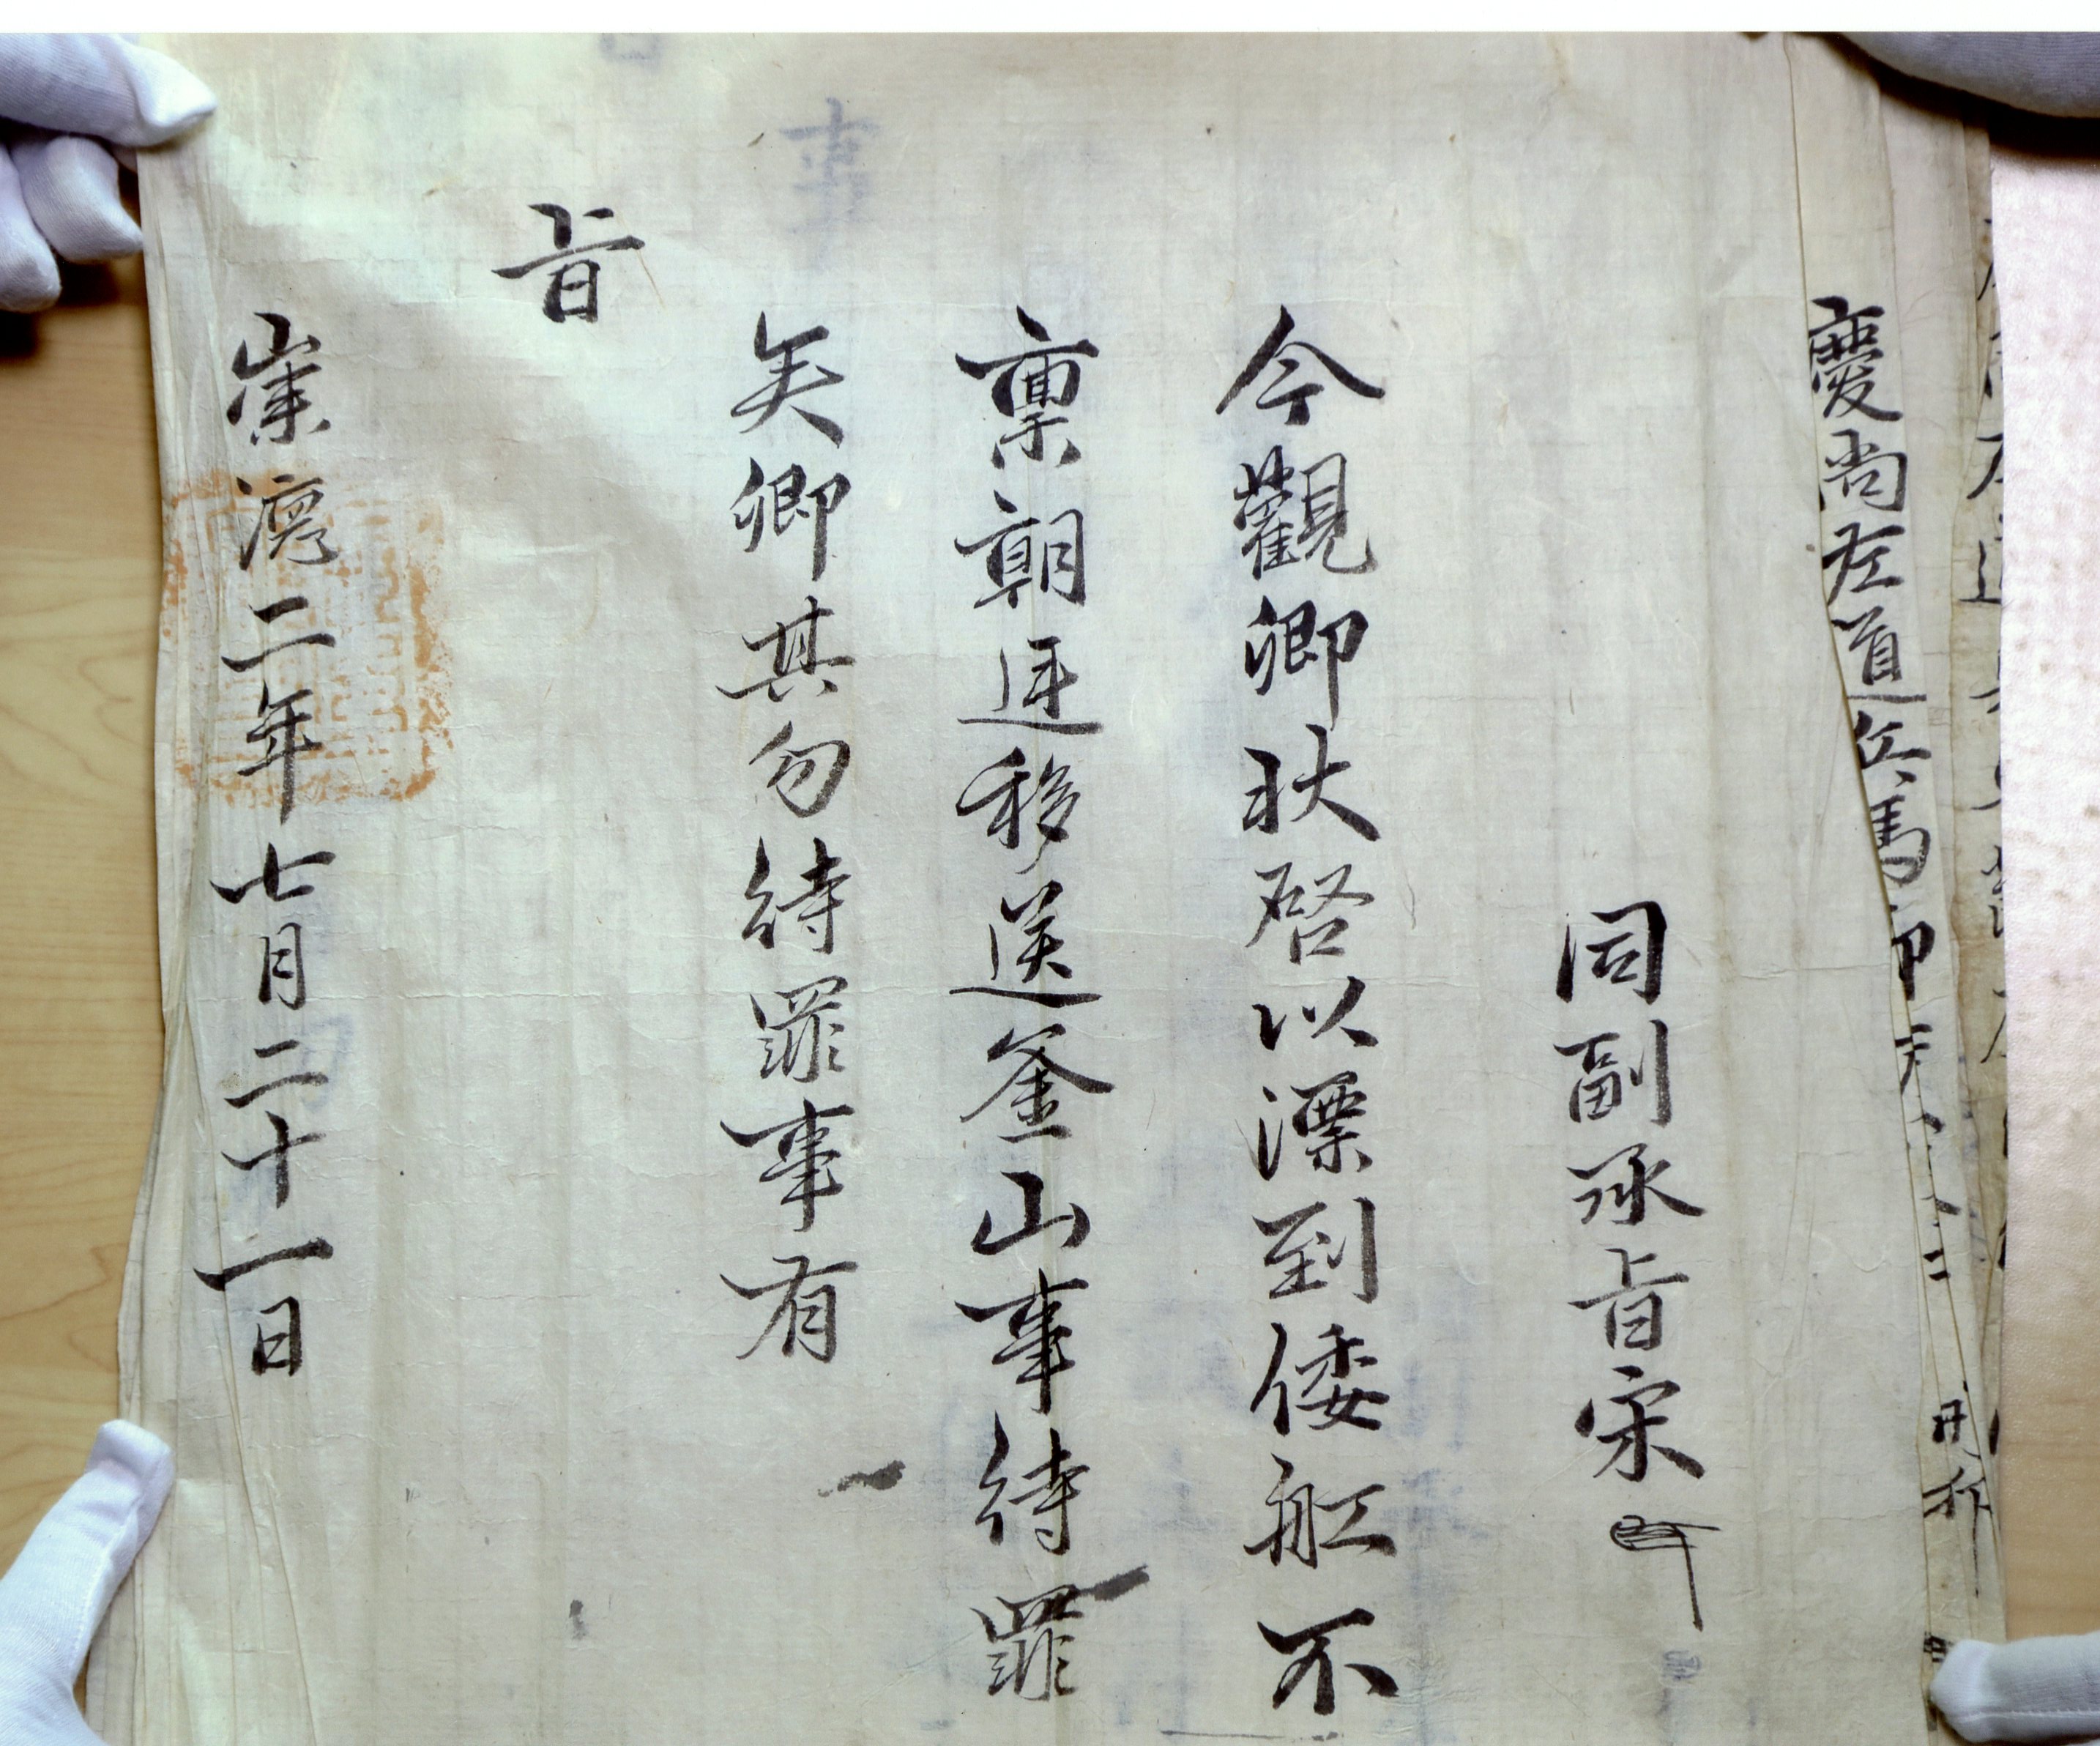 慶尚左道兵馬
同副承旨宋
今觀卿狀啓以漂到倭舡不
稟朝廷移送釜山事待罪
矣卿其勿待罪事有
旨
崇禎二年七月二十一日